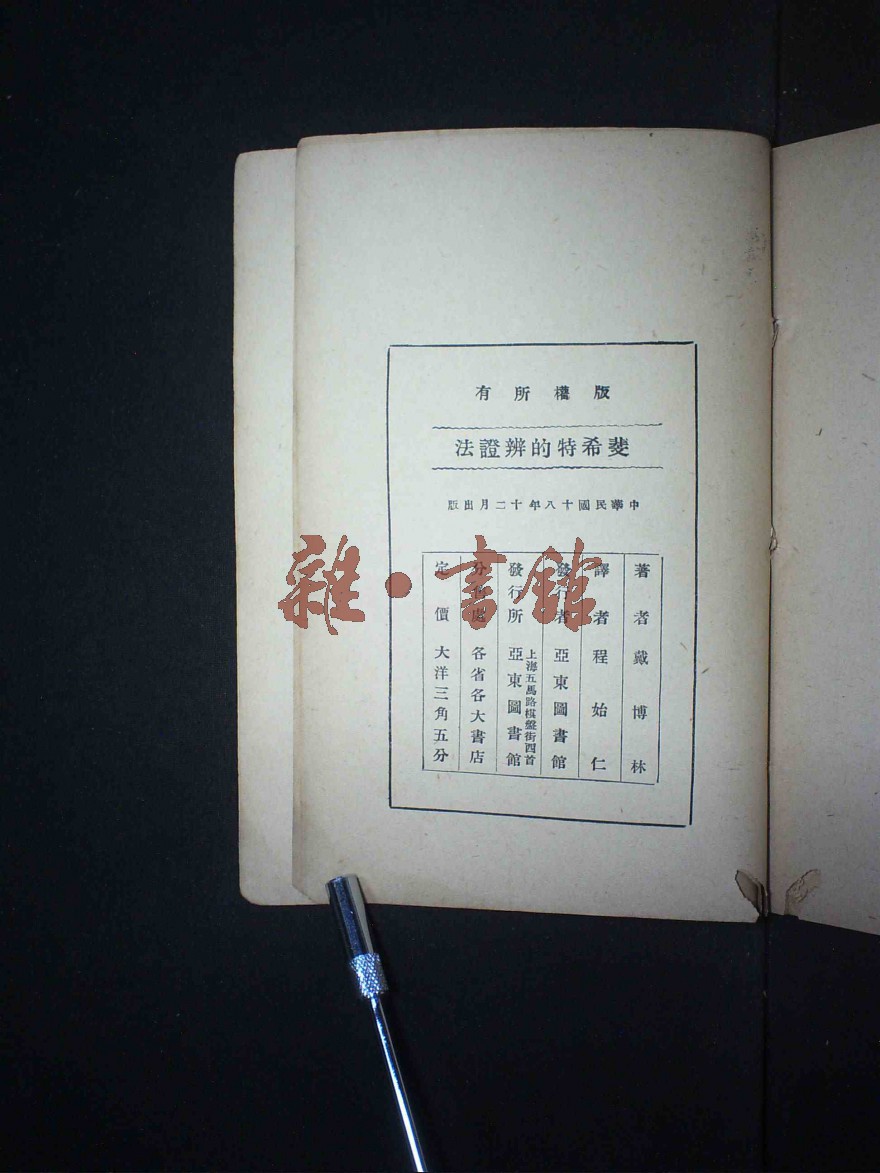 版權所有
斐希特的辨證法
中華民國十八年十二月出版
著者 戴博林
譯者 程始仁
發行者 亞東圖書館
發行所 上海五馬路棋盤街西首 亞東圖書館
分售處 各省各大書店
定價 大洋三角五分
雜·書館